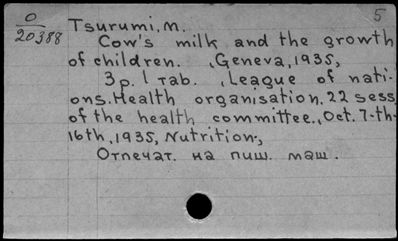 O
20388
5
Tsurumi, M.
Cow's milk and the growth
of children. , Geneva, 1935,
3p. 1 таб. , League of nati-
ons. Health organisation. 22 sess
of the health committee., Oct. 7-th-
16th, 1935, Nutrition-,
Отпечат. на пиш. маш.